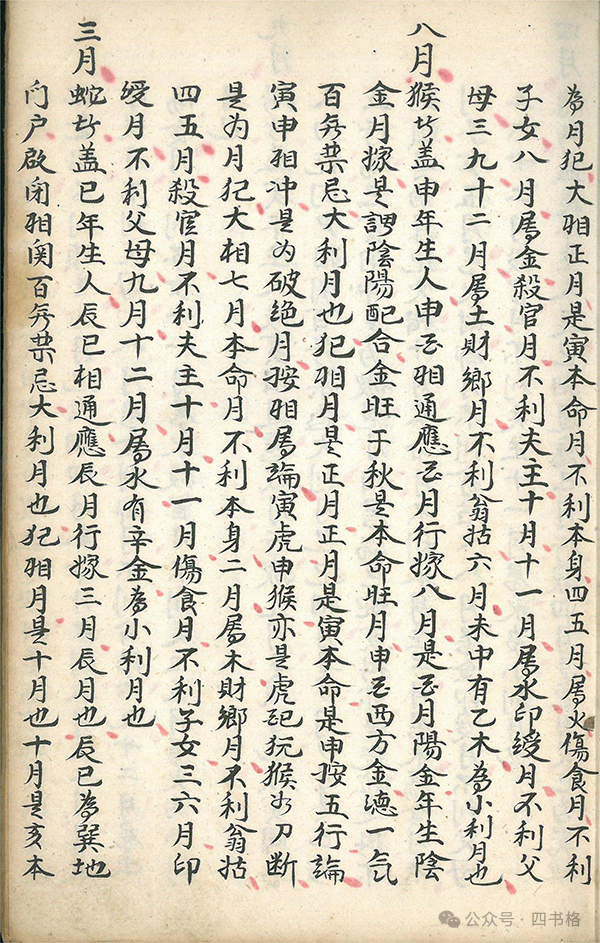 為月犯大相正月是寅本命月不利本身四五月属火傷食月不利
子女八月属金殺官月不利夫主十月十一月属水印綬月不利父
母三九十二月属土財鄉月不利翁姑六月未中有乙木為小利月也
八月猴女蓋申年生人申酉相通應酉月行嫁八月是酉月陽金年生陰
金月嫁是謂陰陽配合金旺于秋是本命旺月申酉西方金德一氣
百無禁忌大利月也犯相月是正月正月是寅本命是申按五行論
寅申相冲是为破绝月按相属論寅虎申猴亦是虎犯猴如刀断
是为月犯大相七月本命月不利本身二月属木財鄉月不利翁姑
四五月殺官月不利夫主十月十一月傷食月不利子女三六月印
綬月不利父母九月十二月属水有辛金為小利月也
三月蛇女蓋巳年生人辰巳相通應辰月行嫁三月辰月也辰巳為巽地
门户啟闭相関百無禁忌大利月也犯相月是十月也十月是亥本
公众号·四书格